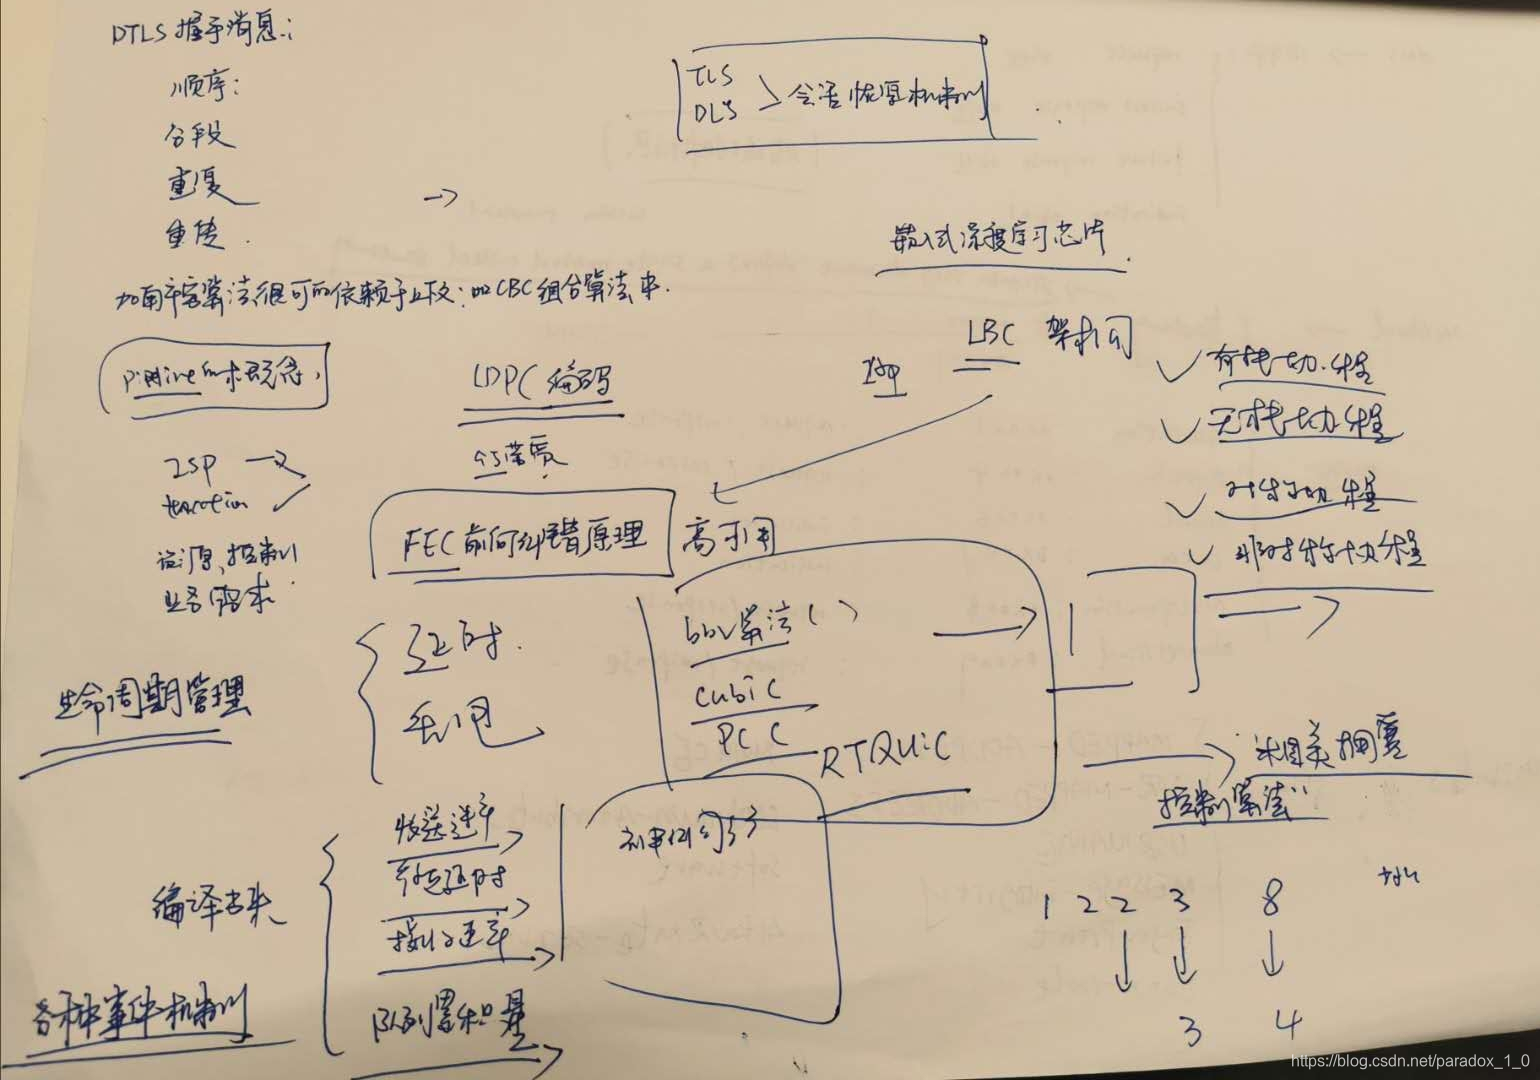 DTLS 握手消息:
顺序:
分段
重复
重传.
TLS
DLS
会话恢复机制
嵌入式深度学习芯片
加解密算法很可能依赖于上下文: 如CBC组合算法中.
Pipeline 的概念,
LDPC 编码
LBC 架构
有栈切程
无栈切程
对称切程
非对称协程
ISP
iteration
资源、控制
业务需求
FEC 前向纠错原理
高可用
bbr算法( )
cubic
PCC
RTQUIC
延时.
丢包
生命周期管理
相关拥塞
控制算法
发送速率
延时
接收速率
队列累积量
编译安装
各种事件机制
1 2 2 3 8
3 4
https://blog.csdn.net/paradox_1_0